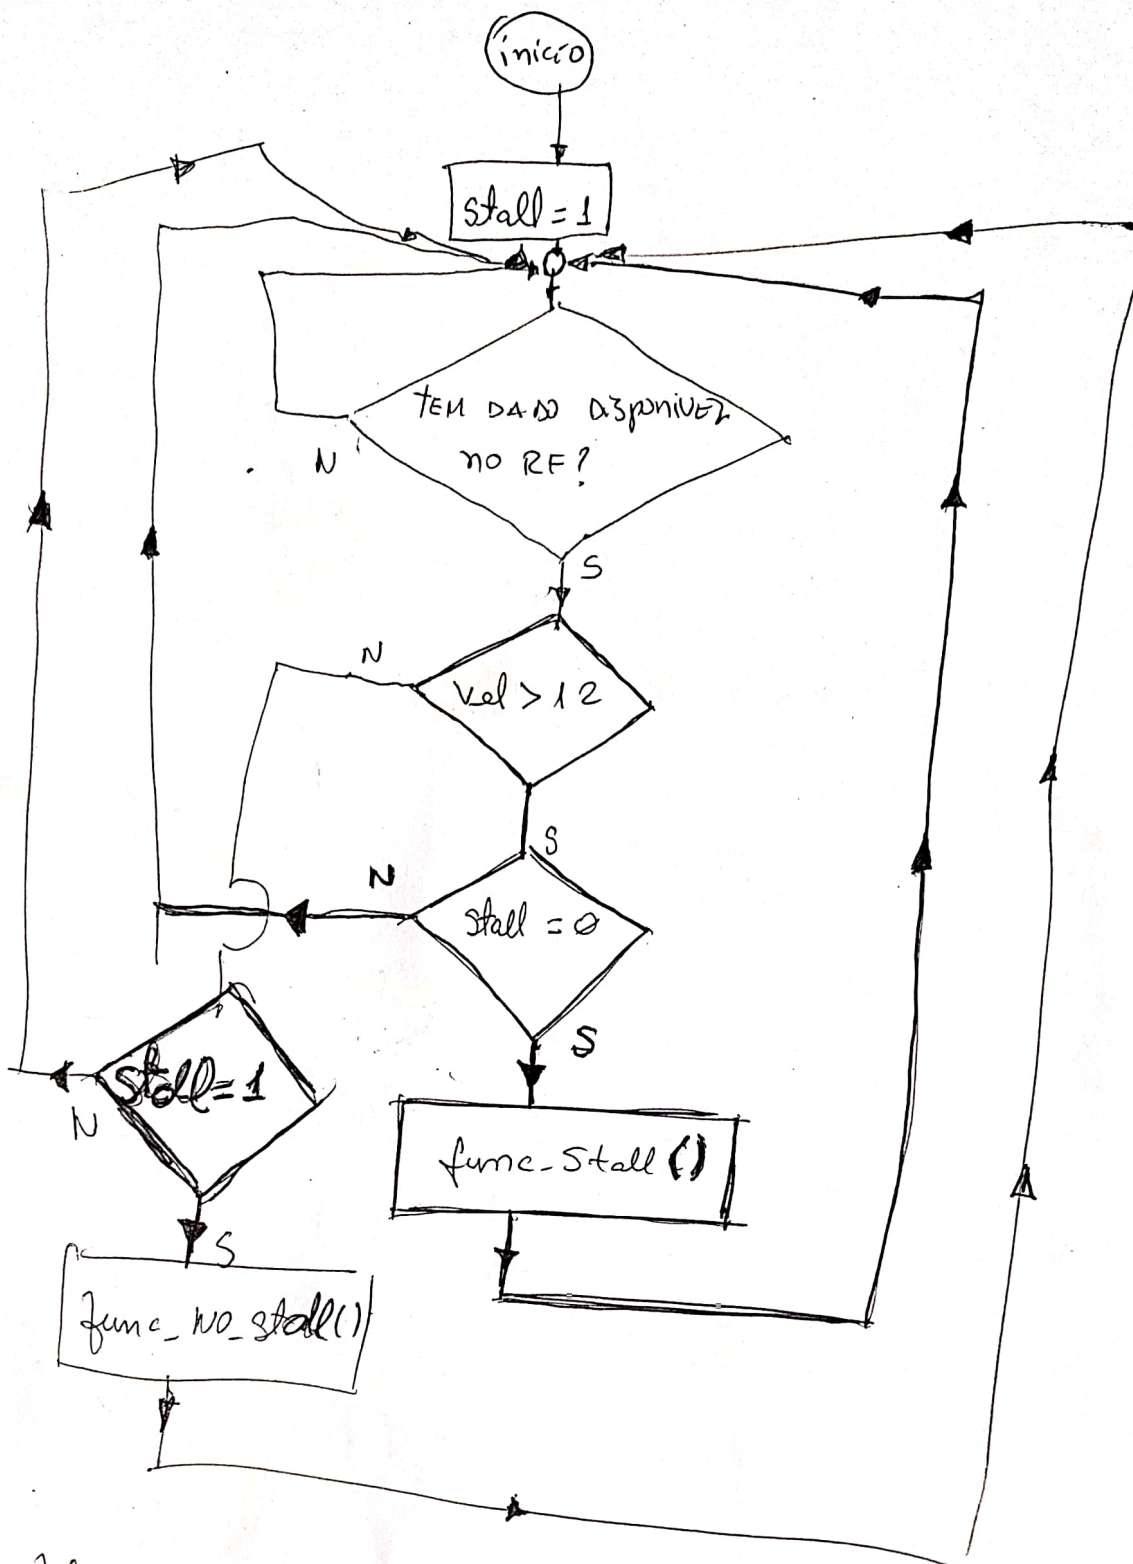 início
stall = 1
TEM DADO DISPONIVEL
NO RF?
N
S
N
Vel > 12
S
N
stall = 0
S
stall = 1
N
func_stall()
S
func_NO_stall()